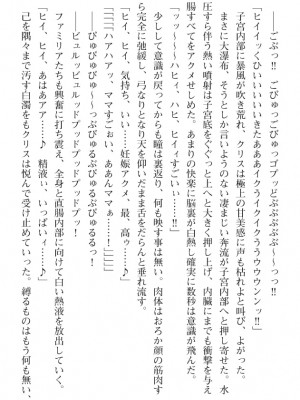 ごぷっ!! ごびゅっごびゅっゴプッどぷぷぷぷぷ～～っっ!!
「ヒイイッくひいいいいきたああああイクイクイクううウウウンンッ!!」
子宮内部に暴風が吹き荒れ、クリスは極上の甘美感に声も枯れよと叫び、よがった。
まさに大瀑布、そうとしか言いようのない凄まじい奔流が子宮内部へと押し寄せた。水
圧すら伴う熱い噴射は子宮底をぐぐっと上へと大きく押し上げ、内臓にまでも衝撃を与え
腸すべてをアクメせしめた。あまりの快楽に脳裏が白熱し確実に数秒は意識が飛んだ。
「ッッ～～ハヒィ、ハヒ、ヒイィすごいい……!!」
少しして意識が戻ってからも瞳は裏返り、何も映す事は無い。肉体はおろか顔の筋肉す
ら完全に弛緩し、弓なりとなり天を仰いだまま舌をだらんと垂れ流す。
「ヒイ、ヒイ、気持ち、いいい……妊娠アクメ、最、高ゥ……♪」
「「「ハアハアッ、ママすごい、ああんママぁっ！」」」
ぴゅるぴゅるっ～ぷぴゅるるぷぴゅるるっ！
――ビュルッビュルッドプッドプッドプッ！
ファミリアたちも興奮に打ち震え、全身と直腸内部に向けて白い熱液を放出していく。
「ヒイ、ヒイ、あはぁアァ……♪ 精液ぃ、いっぱいィ……♪」
己を隅々まで汚す白濁をもクリスは悦んで受け止めていった。縛るものはもう何も無い、